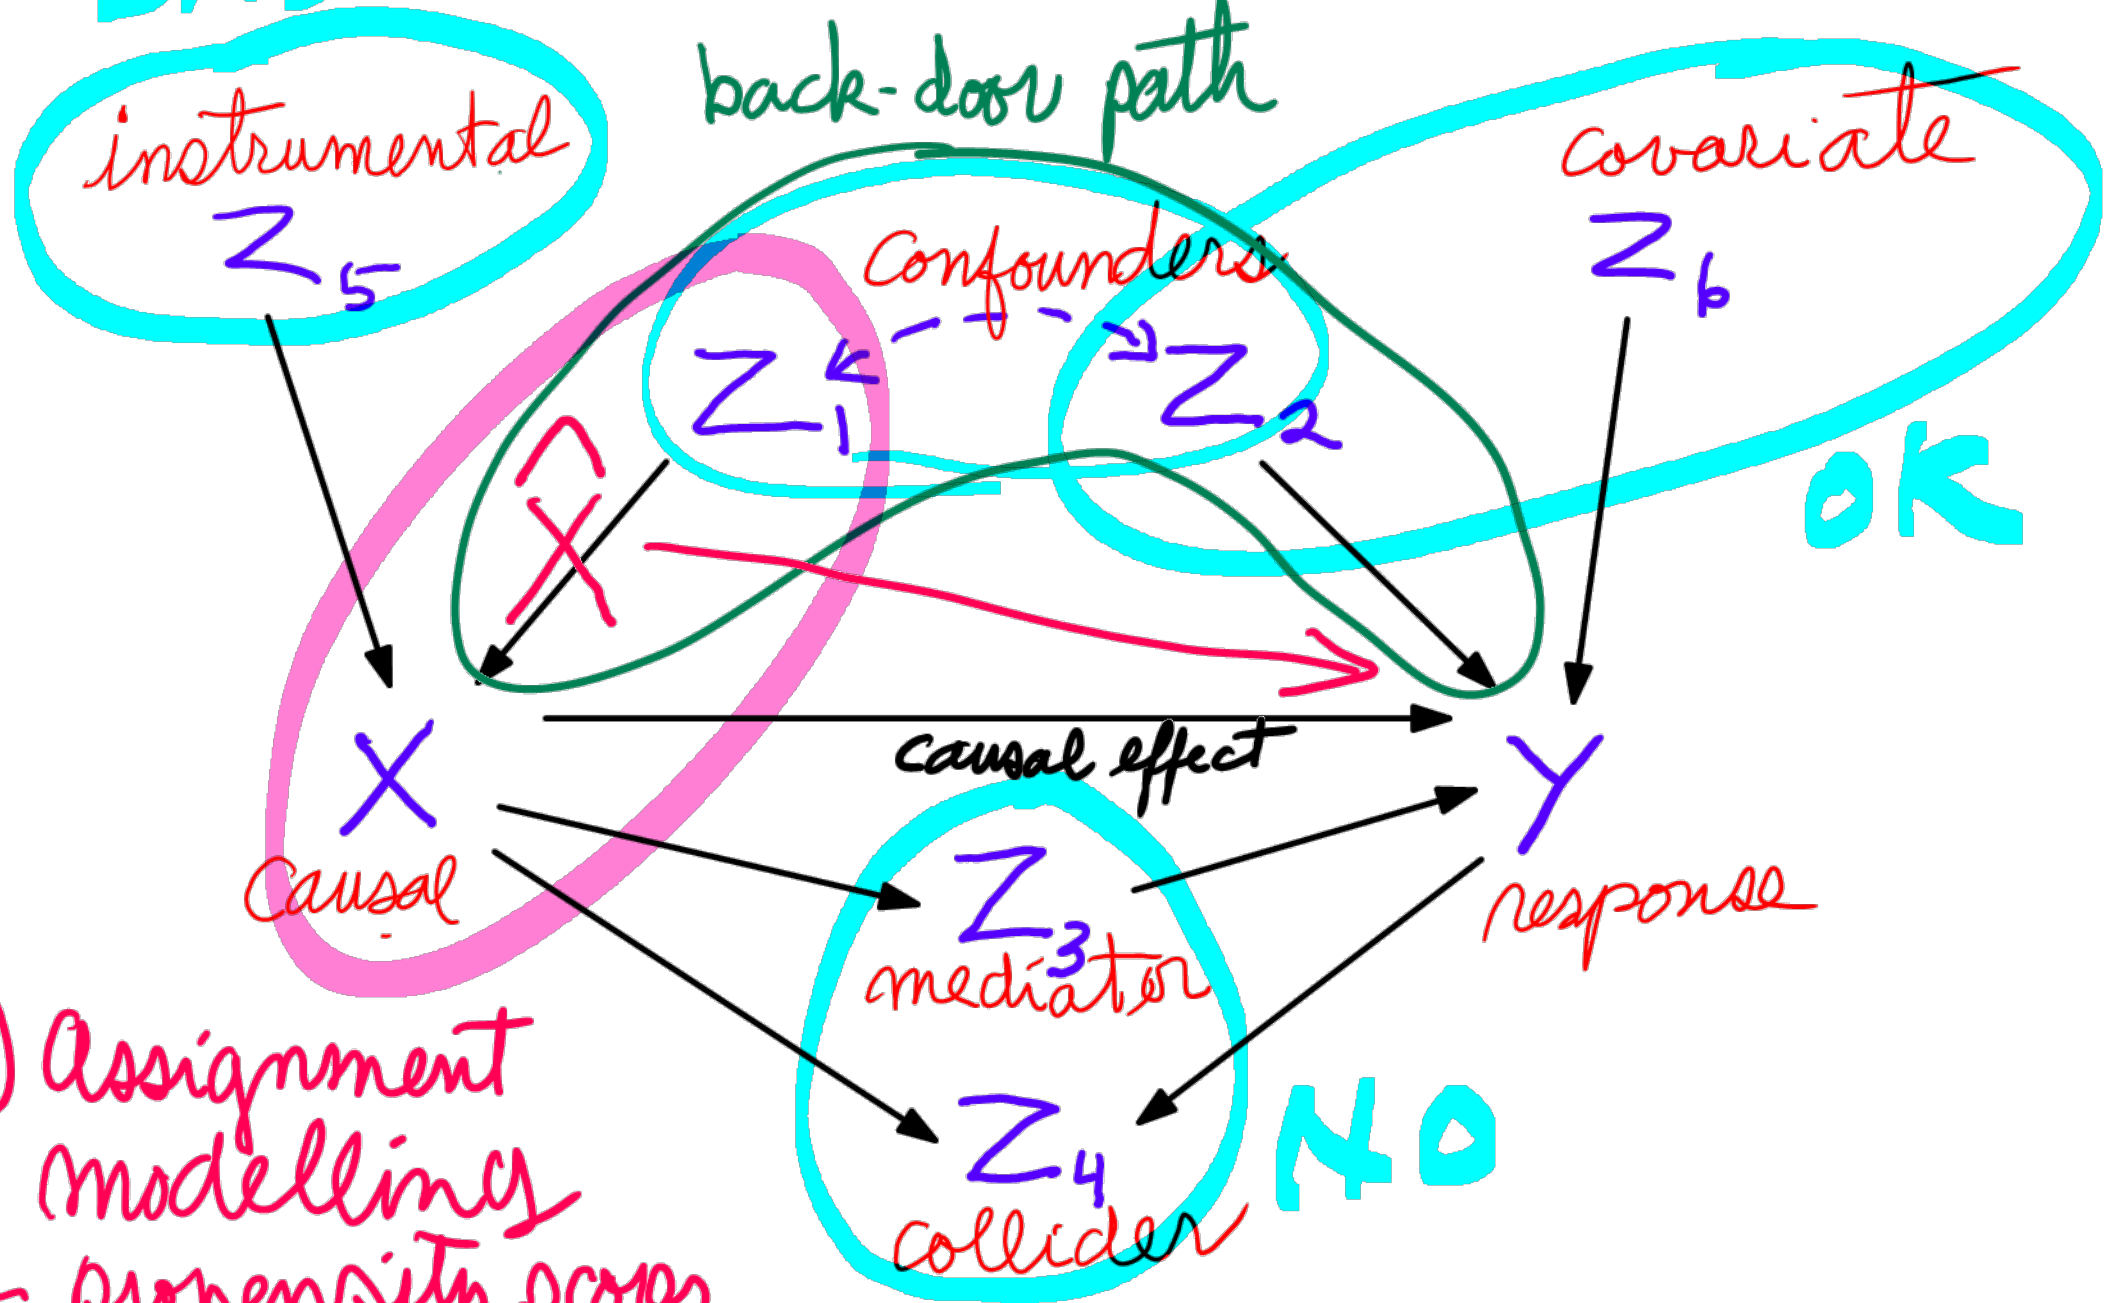 back-door path
instrumental
Z5
covariate
Z6
confounders
Z1
Z2
OK
X̂
causal effect
X
causal
Y
response
Z3
mediator
NO
Z4
collider
) Assignment
modelling
- propensity scores